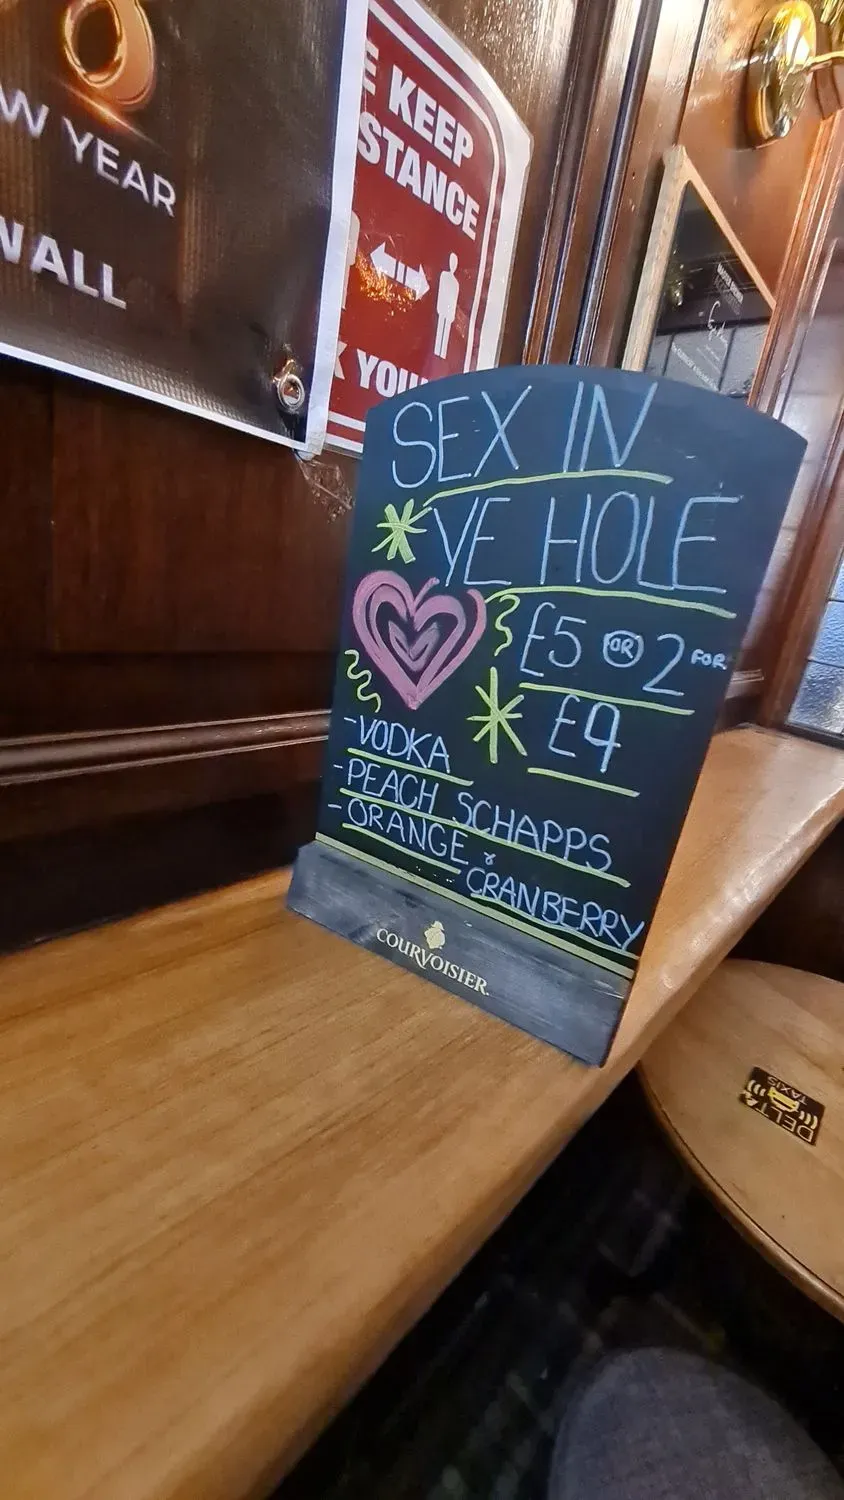 W YEAR
WALL
E KEEP
STANCE
K YOU
SEX IN
YE HOLE
£5 OR 2 FOR
£9
-VODKA
-PEACH SCHAPPS
-ORANGE &
CRANBERRY
COURVOISIER
DELTA
TAXIS